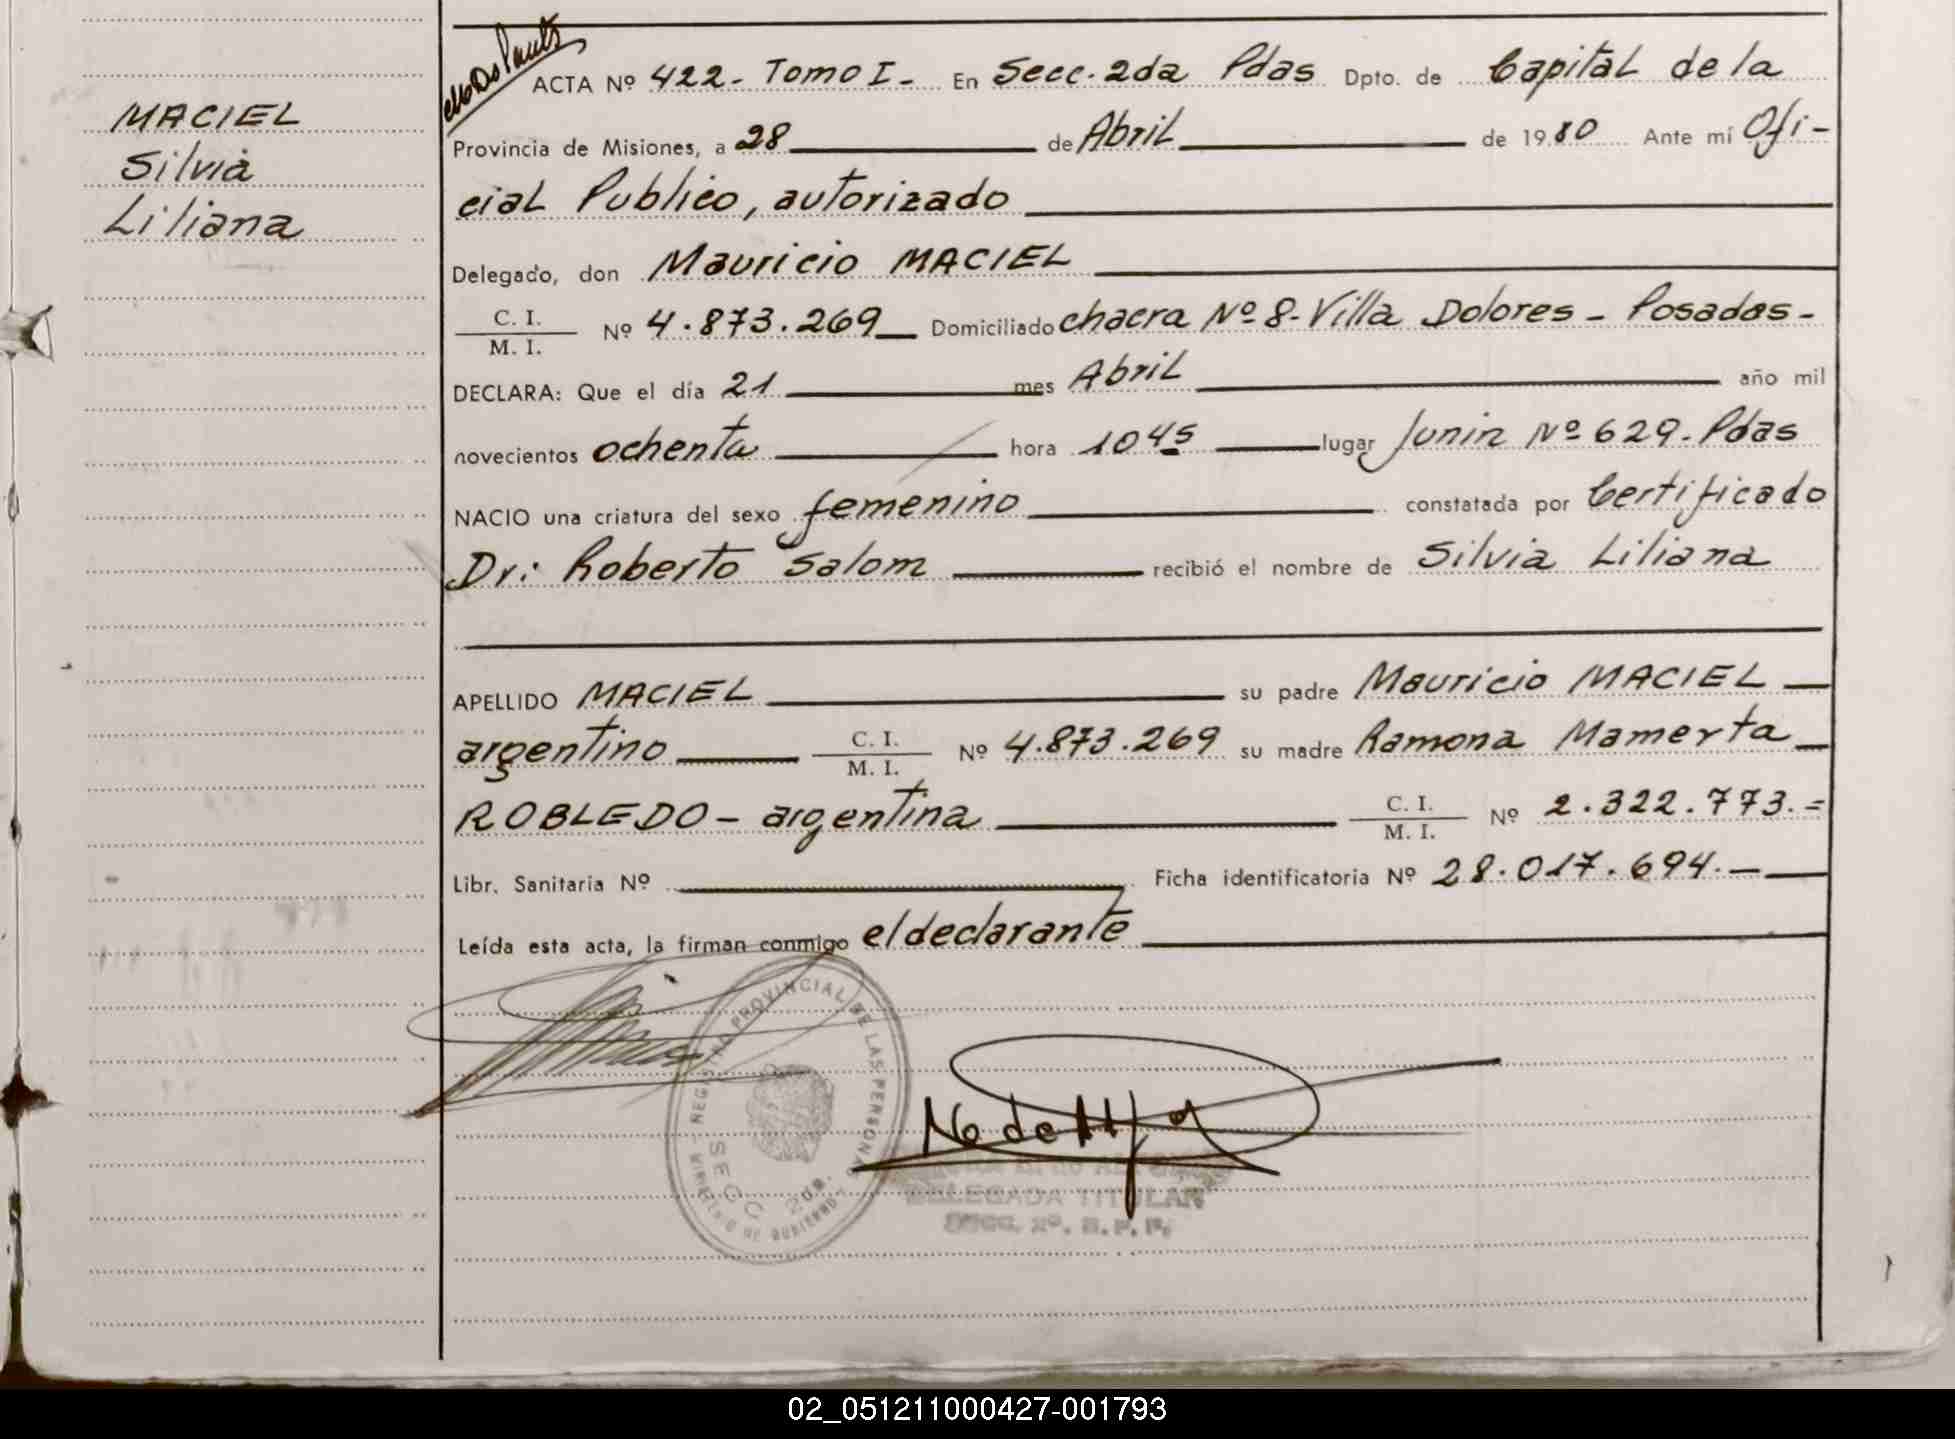 MACIEL
Silvia
Liliana
ACTA Nº 422- Tomo I- En Secc. 2da Pdas Dpto. de Capital de la
Provincia de Misiones, a 28 de Abril de 1980 Ante mí Ofi-
cial Publico, autorizado
Delegado, don Mauricio MACIEL
C. I.
M. I. Nº 4.873.269 Domiciliado chacra Nº 8- Villa Dolores - Posadas-
DECLARA: Que el día 21 mes Abril año mil
novecientos ochenta hora 10 45 lugar Junin Nº 629- Pdas
NACIO una criatura del sexo femenino constatada por Certificado
Dr: Roberto Salom recibió el nombre de Silvia Liliana
APELLIDO MACIEL su padre Mauricio MACIEL
argentino C. I. M. I. Nº 4.873.269 su madre Ramona Mamerta
ROBLEDO - argentina C. I. M. I. Nº 2.322.773.=
Libr. Sanitaria Nº Ficha identificatoria Nº 28.017.694.-
Leída esta acta, la firman conmigo el declarante
REGISTRO PROVINCIAL DE LAS PERSONAS
SECC 2da.
MINISTERIO DE GOBIERNO
DELEGADA TITULAR
SECC. 2º. R.P.P.
02_051211000427-001793